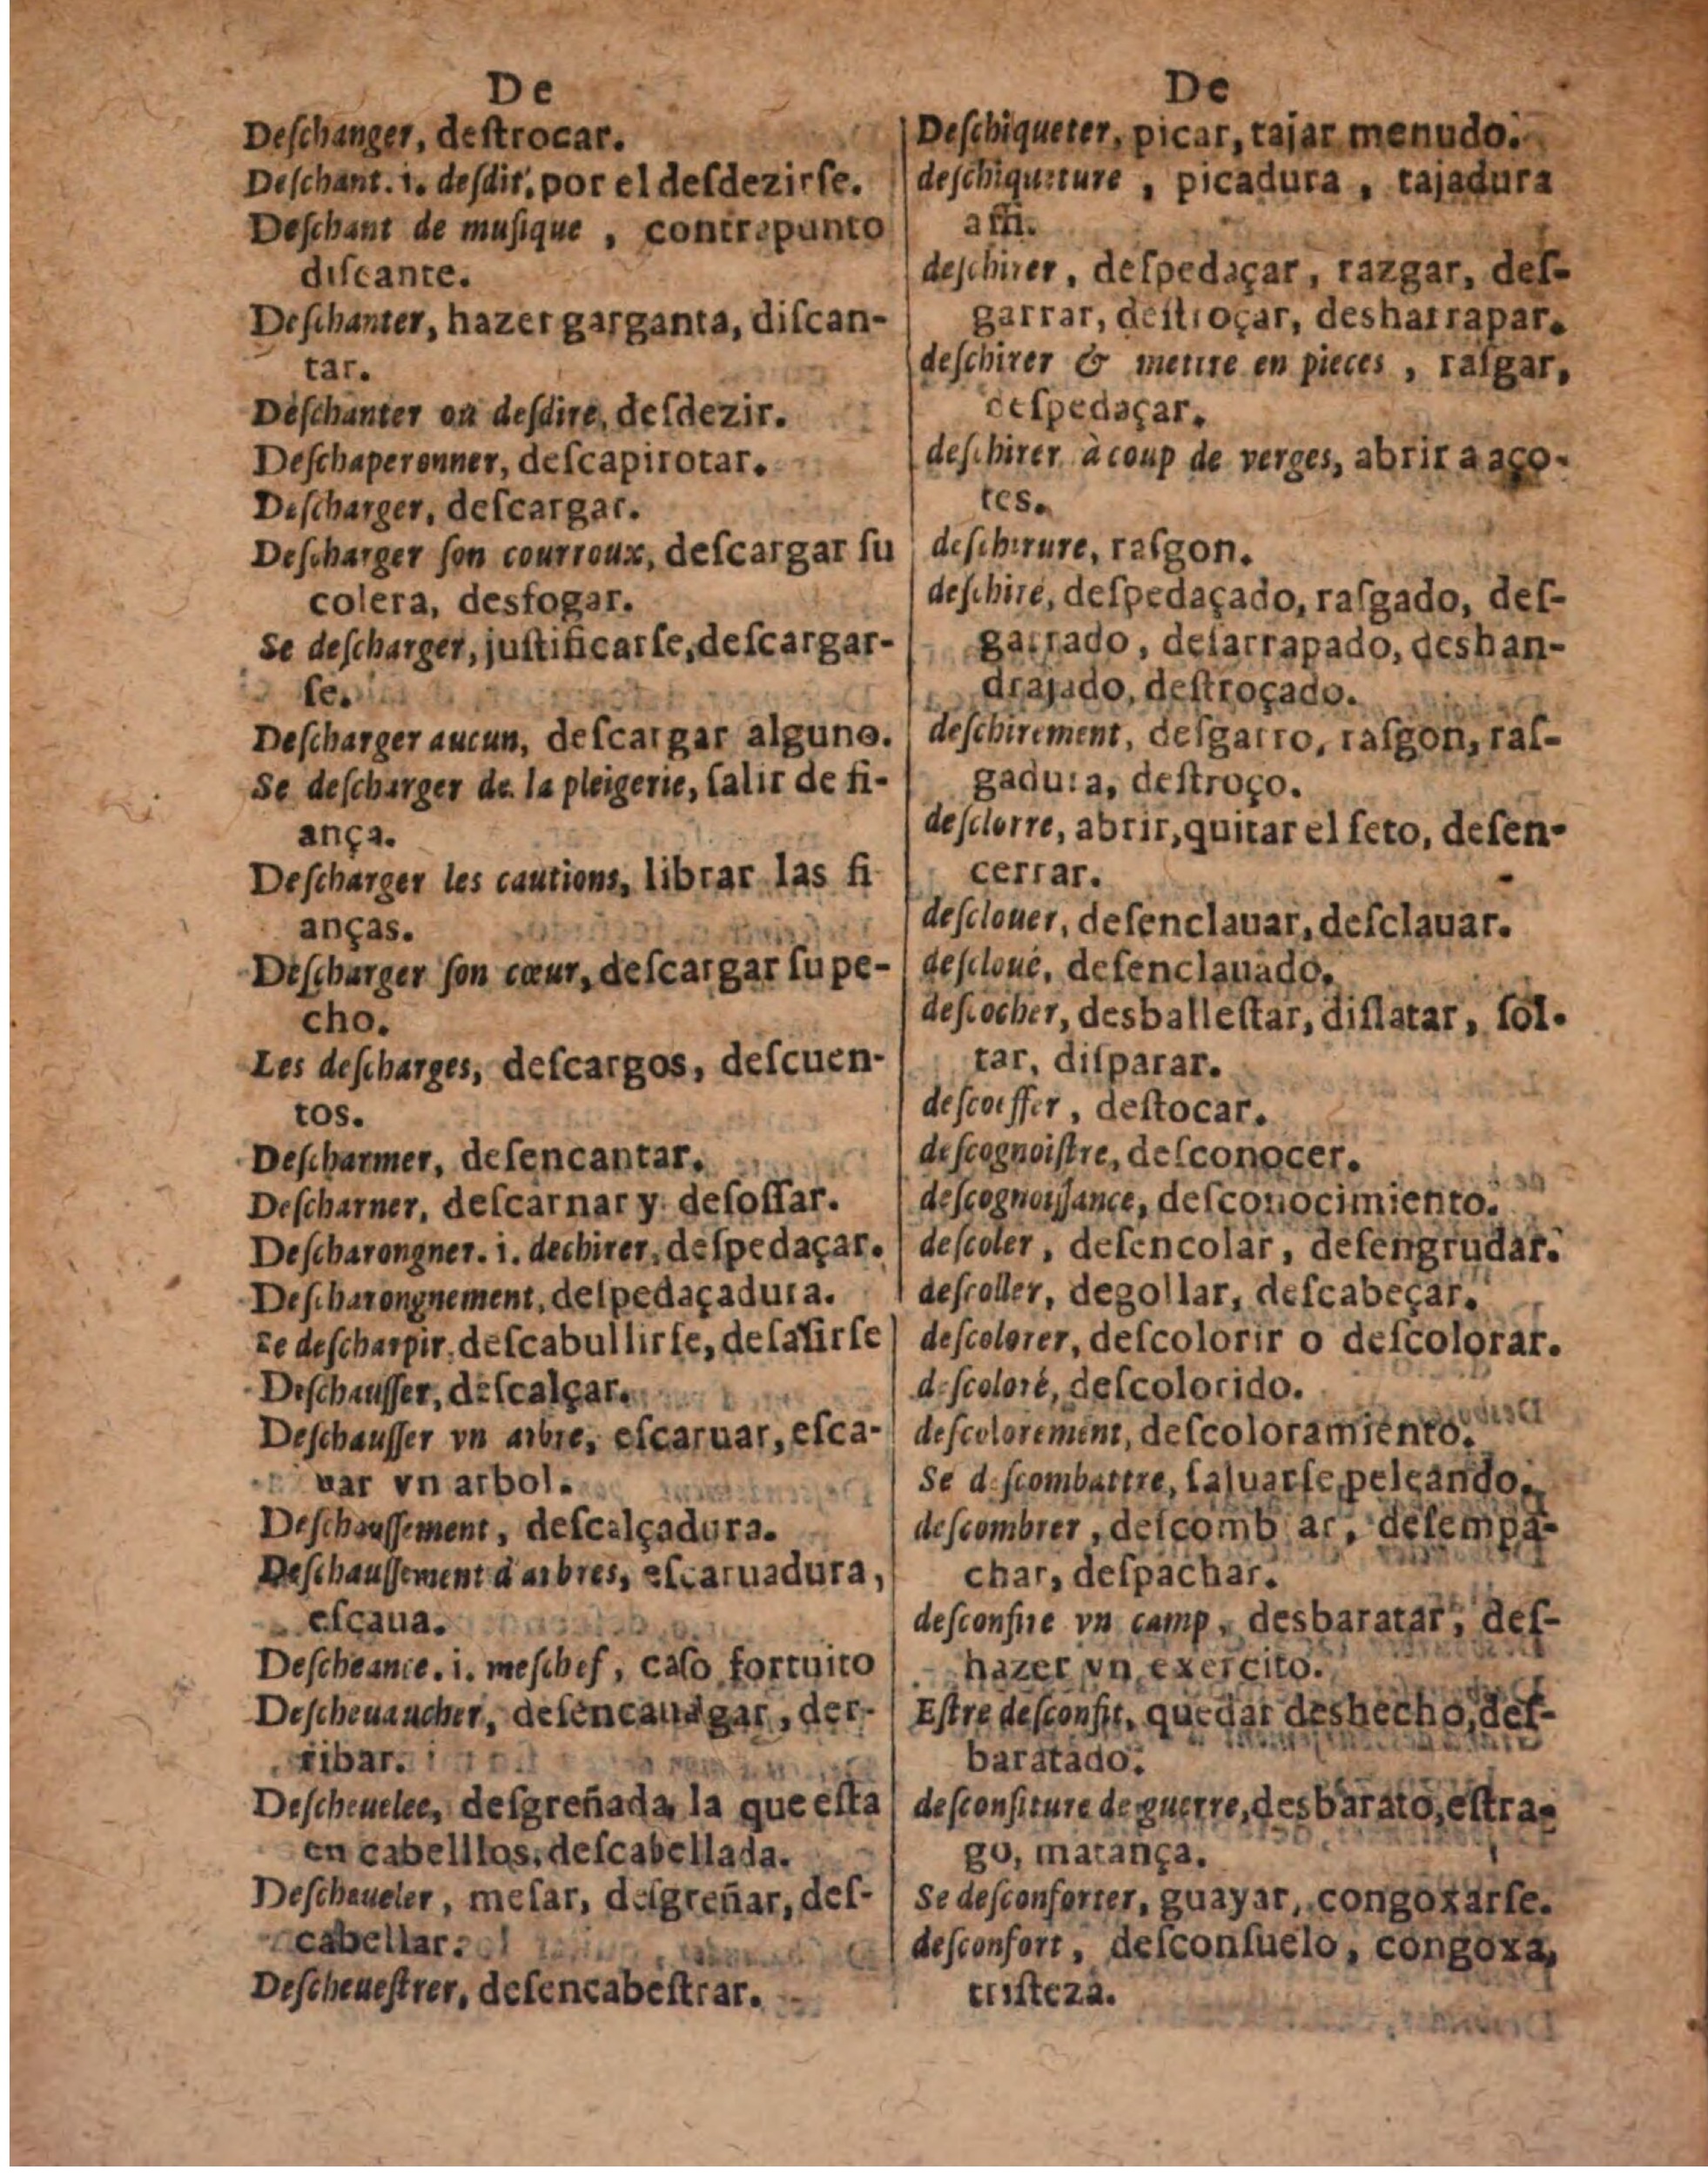 De
Deſchanger, deſtrocar.
Deſchant. i. deſdit, por el deſdezirſe.
Deſchant de muſique , contrapunto
diſcante.
Deſchanter, hazer garganta, diſcan-
tar.
Deſchanter ou deſdire, deſdezir.
Deſchaperonner, deſcapirotar.
Deſcharger, deſcargar.
Deſcharger ſon courroux, deſcargar ſu
colera, desfogar.
Se deſcharger, juſtificarſe, deſcargar-
ſe.
Deſcharger aucun, deſcargar alguno.
Se deſcharger de la pleigerie, ſalir de fi-
ança.
Deſcharger les cautions, librar las fi
anças.
Deſcharger ſon cœur, deſcargar ſu pe-
cho.
Les deſcharges, deſcargos, deſcuen-
tos.
Deſcharmer, deſencantar.
Deſcharner, deſcarnar y deſoſſar.
Deſcharongner. i. dechirer, deſpedaçar.
Deſcharongnement, deſpedaçadura.
Se deſcharpir, deſcabullirſe, deſaſirſe
Deſchauſſer, deſcalçar.
Deſchauſſer vn arbre, eſcaruar, eſca-
uar vn arbol.
Deſchauſſement, deſcalçadura.
Deſchauſſement d'arbres, eſcaruadura,
eſcaua.
Deſcheance. i. meſchef, caſo fortuito
Deſcheuaucher, deſencaualgar, der-
ribar.
Deſcheuelee, deſgreñada, la que eſta
en cabelllos, deſcabellada.
Deſcheueler, meſar, deſgreñar, deſ-
cabellar.
Deſcheueſtrer, deſencabeſtrar.
De
Deſchiqueter, picar, tajar menudo.
deſchiqueture , picadura , tajadura
aſſi.
deſchirer, deſpedaçar, razgar, deſ-
garrar, deſtroçar, desharrapar.
deſchirer & mettre en pieces , raſgar,
deſpedaçar.
deſchirer à coup de verges, abrir a aço-
tes.
deſchirure, raſgon.
deſchiré, deſpedaçado, raſgado, deſ-
garrado, deſarrapado, deshan-
drajado, deſtroçado.
deſchirement, deſgarro, raſgon, raſ-
gadura, deſtroço.
deſclorre, abrir, quitar el ſeto, deſen-
cerrar.
deſclouer, deſenclauar, deſclauar.
deſcloué, deſenclauado.
deſcocher, desballeſtar, diſlatar, ſol-
tar, diſparar.
deſcoeffer, deſtocar.
deſcognoiſtre, deſconocer.
deſcognoiſſance, deſconocimiento.
deſcoler, deſencolar, deſengrudar.
deſcoller, degollar, deſcabeçar.
deſcolorer, deſcolorir o deſcolorar.
deſcoloré, deſcolorido.
deſcolorement, deſcoloramiento.
Se deſcombattre, ſaluarſe peleando.
deſcombrer, deſcomb ar, deſempa-
char, deſpachar.
deſconfire vn camp, desbaratar, deſ-
hazer vn exercito.
Eſtre deſconfit, quedar deshecho, deſ-
baratado.
deſconfiture de guerre, desbarato, eſtra-
go, matança.
Se deſconforter, guayar, congoxarſe.
deſconfort, deſconſuelo, congoxa,
triſteza.